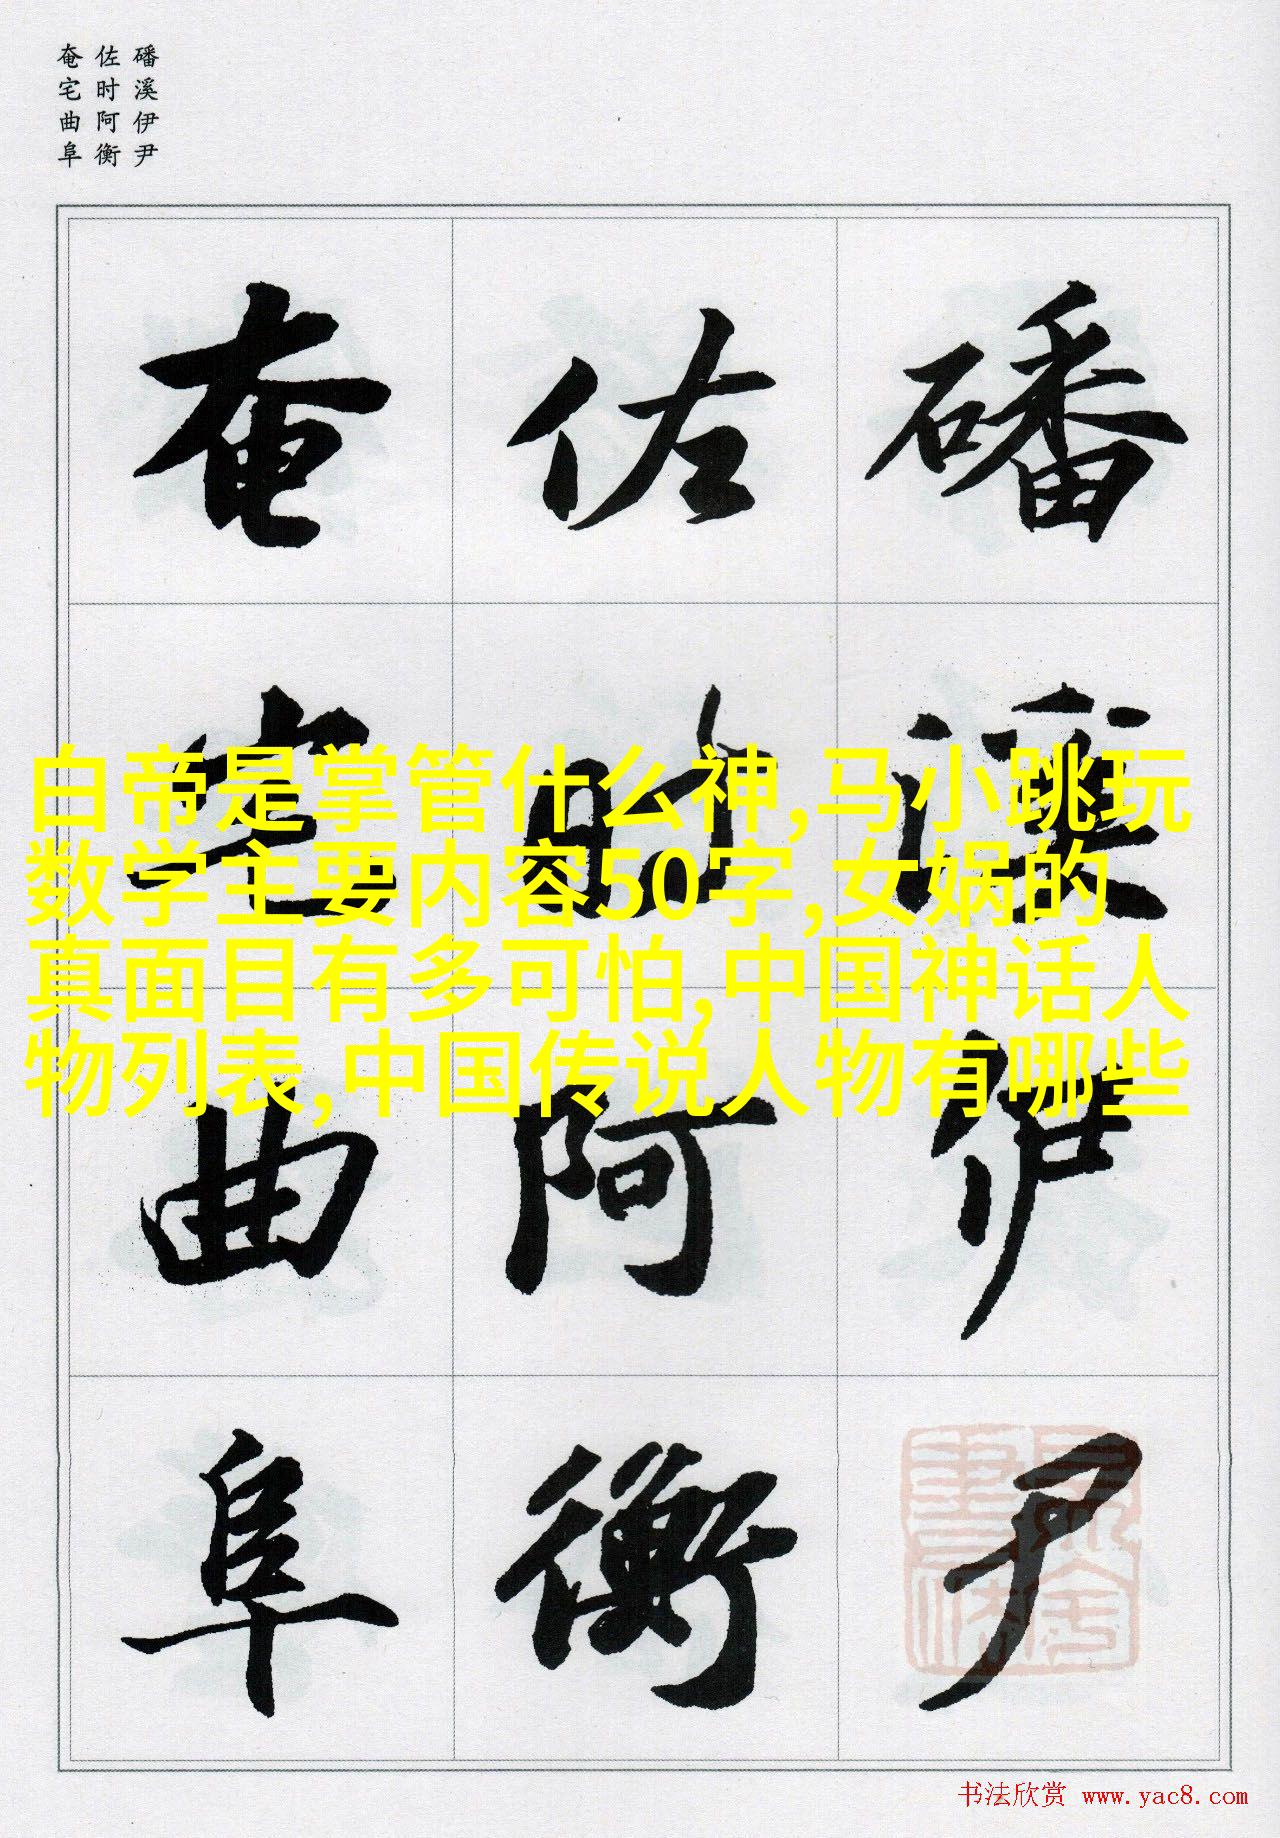 磻溪伊尹
佐时阿衡
奄宅曲阜
磻溪伊尹
佐时阿衡
奄宅曲阜
白帝是掌管什么神,马小跳玩
数学主要内容50字,女娲的
真面目有多可怕,中国神话人
物列表,中国传说人物有哪些
书法欣赏 www.yac8.com